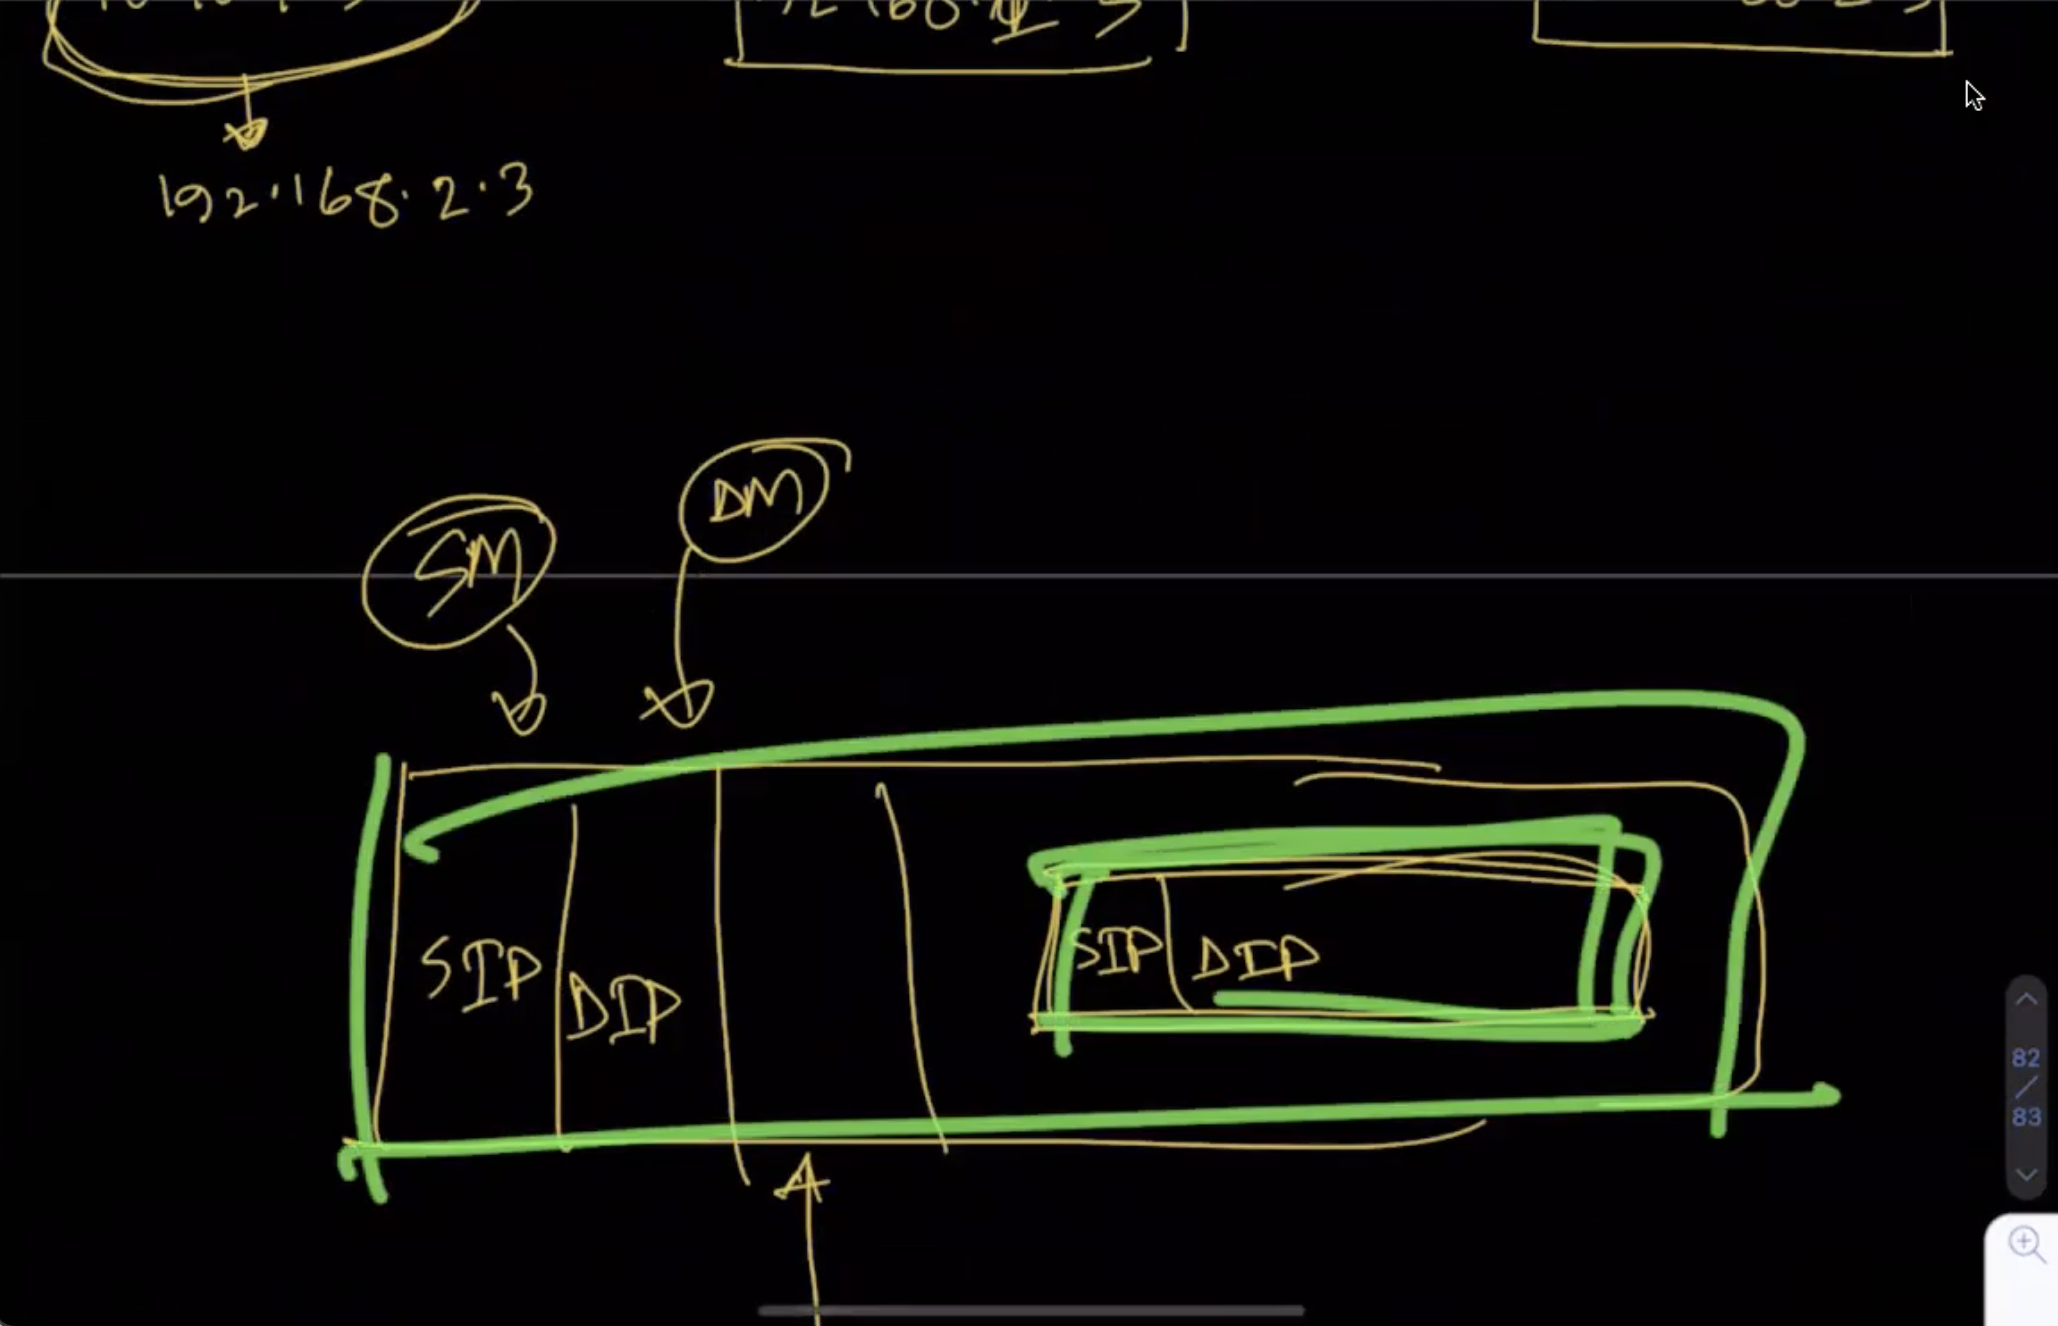 192.168.2.3
DM
SM
SIP DIP
SIP DIP
82
/
83